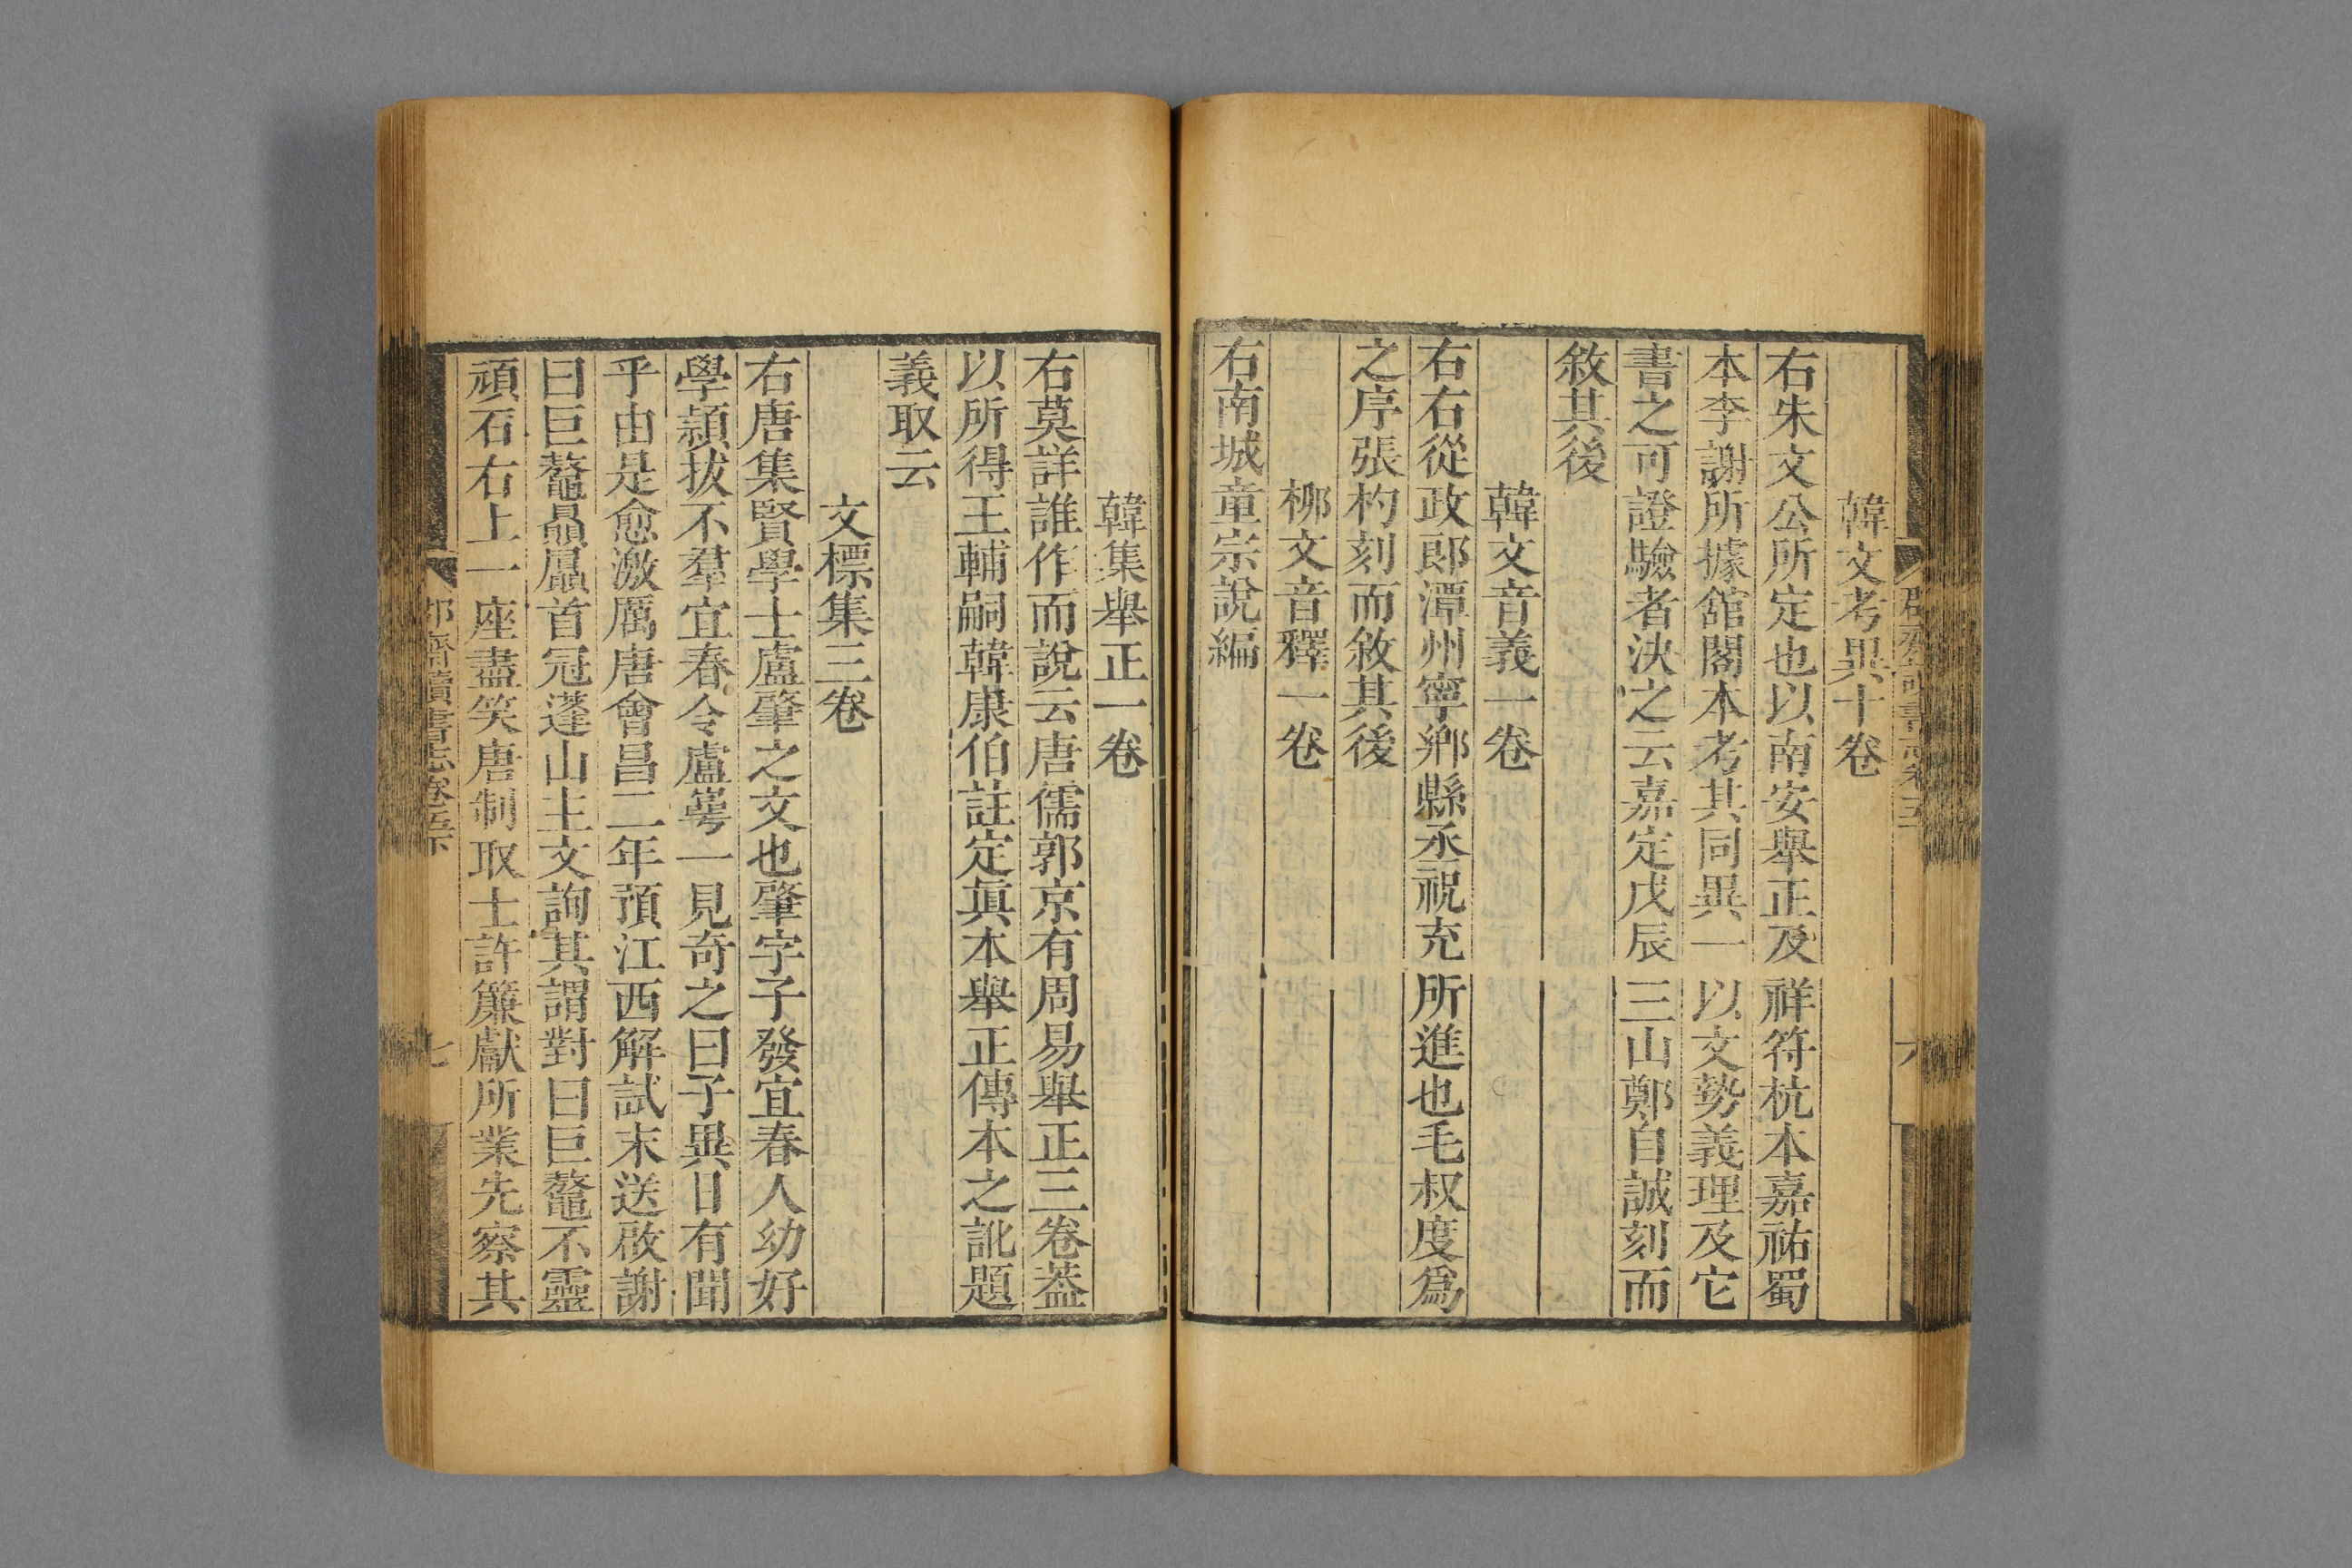 韓文考異十卷
右朱文公所定也以南安舉正及祥符杭本嘉祐蜀
本李謝所據舘閣本考其同異一以文勢義理及它
書之可證驗者決之云嘉定戊辰三山鄭自誠刻而
敘其後
韓文音義一卷
右右從政郎潭州寧鄉縣丞祝充所進也毛叔度爲
之序張杓刻而敘其後
柳文音釋一卷
右南城童宗說編
韓集舉正一卷
右莫詳誰作而說云唐儒郭京有周易舉正三卷葢
以所得王輔嗣韓康伯註定眞本舉正傳本之訛題
義取云
文標集三卷
右唐集賢學士盧肇之文也肇字子發宜春人幼好
學頴拔不羣宜春令盧萼一見奇之曰子異日有聞
乎由是愈激厲唐會昌二年預江西解試末送啟謝
曰巨鼇贔屭首冠蓬山主文詢其謂對曰巨鼇不靈
頑石右上一座盡笑唐制取士許簾獻所業先察其
齋讀書志卷五下
七